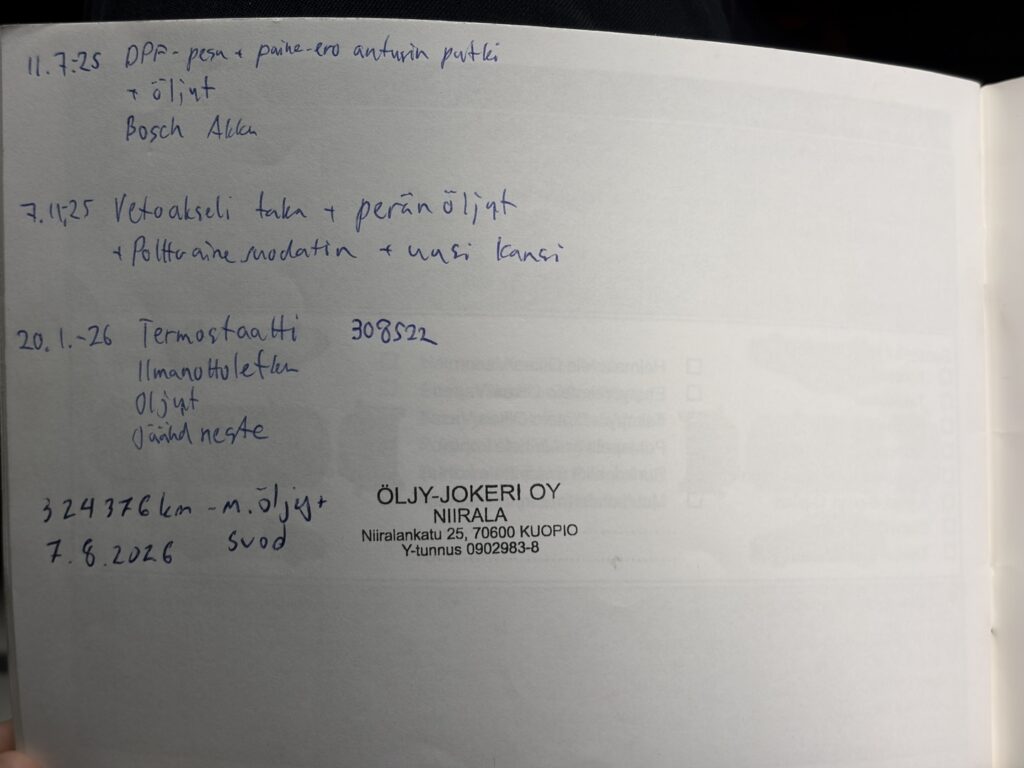 11.7-25 DPF-pesu + paine-ero anturin putki
+ öljyt
Bosch Akku
7.11-25 Vetoakseli taka + perän öljyt
+ Polttoainesuodatin + uusi kansi
20.1.-26 Termostaatti 308522
Ilmanottoletku
Öljyt
Jäähd neste
324376km - m.öljyt +
7.8.2026 svod
ÖLJY-JOKERI OY
NIIRALA
Niiralankatu 25, 70600 KUOPIO
Y-tunnus 0902983-8